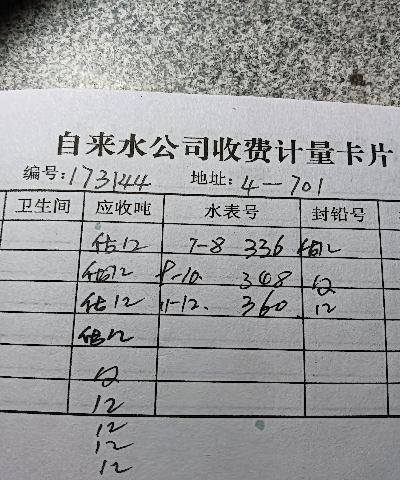 自来水公司收费计量卡片
编号:173144 地址:4-701
卫生间 应收吨 水表号 封铅号
估12 7-8 336 估12
估12 9-10. 348 12
估12 11-12. 360 12
估12
12
12
12
12
12